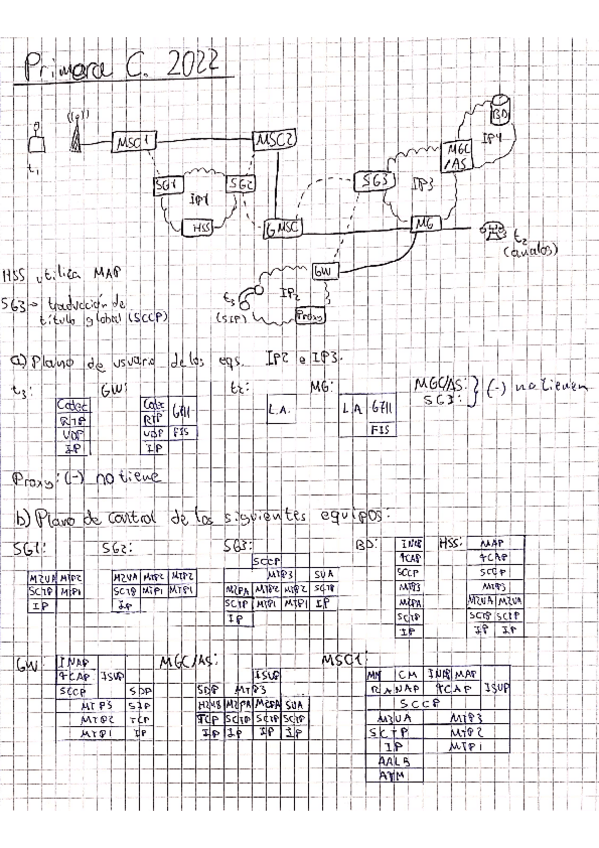 Primera C. 2022
BD
IP4
MSC1
MSC2
MGC
/AS
t1
SG1
SG2
SG3
IP1
IP3
HSS
GMSC
MG
t2
(analos)
GW
HSS utiliza MAP
t3
IP2
SG3 → traducción de
título global (SCCP)
(SIP)
Proxy
a) Plano de usuario de los eqs. IP2 e IP3.
t3: GW: t2: MG: MGC/AS: } (-) no tienen
SG3:
Codec Codec G711 L.A. L.A G711
RTP RTP
UDP UDP FIS FIS
IP IP
Proxy: (-) no tiene
b) Plano de control de los siguientes equipos:
SG1: SG2: SG3: BD: HSS:
SCCP INAP MAP
TCAP TCAP
MTP3 SUA SCCP SCCP
M2UA MTP2 M2UA MTP2 MTP2 M2PA MTP2 MTP2 SCTP MTP3 MTP3
SCTP MTP1 SCTP MTP1 MTP1 SCTP MTP1 MTP1 IP M2PA M2UA M2UA
IP IP IP SCTP SCTP SCTP
IP IP IP
GW: MGC/AS: MSC1:
INAP
TCAP ISUP ISUP MM CM INAP MAP
SCCP SDP SDP MTP3 RANAP TCAP ISUP
MTP3 SIP M2UA M2PA SUA SCCP
MTP2 TCP TCP SCTP SCTP SCTP M2UA MTP3
MTP1 IP IP IP IP IP SCTP MTP2
IP MTP1
AAL5
ATM